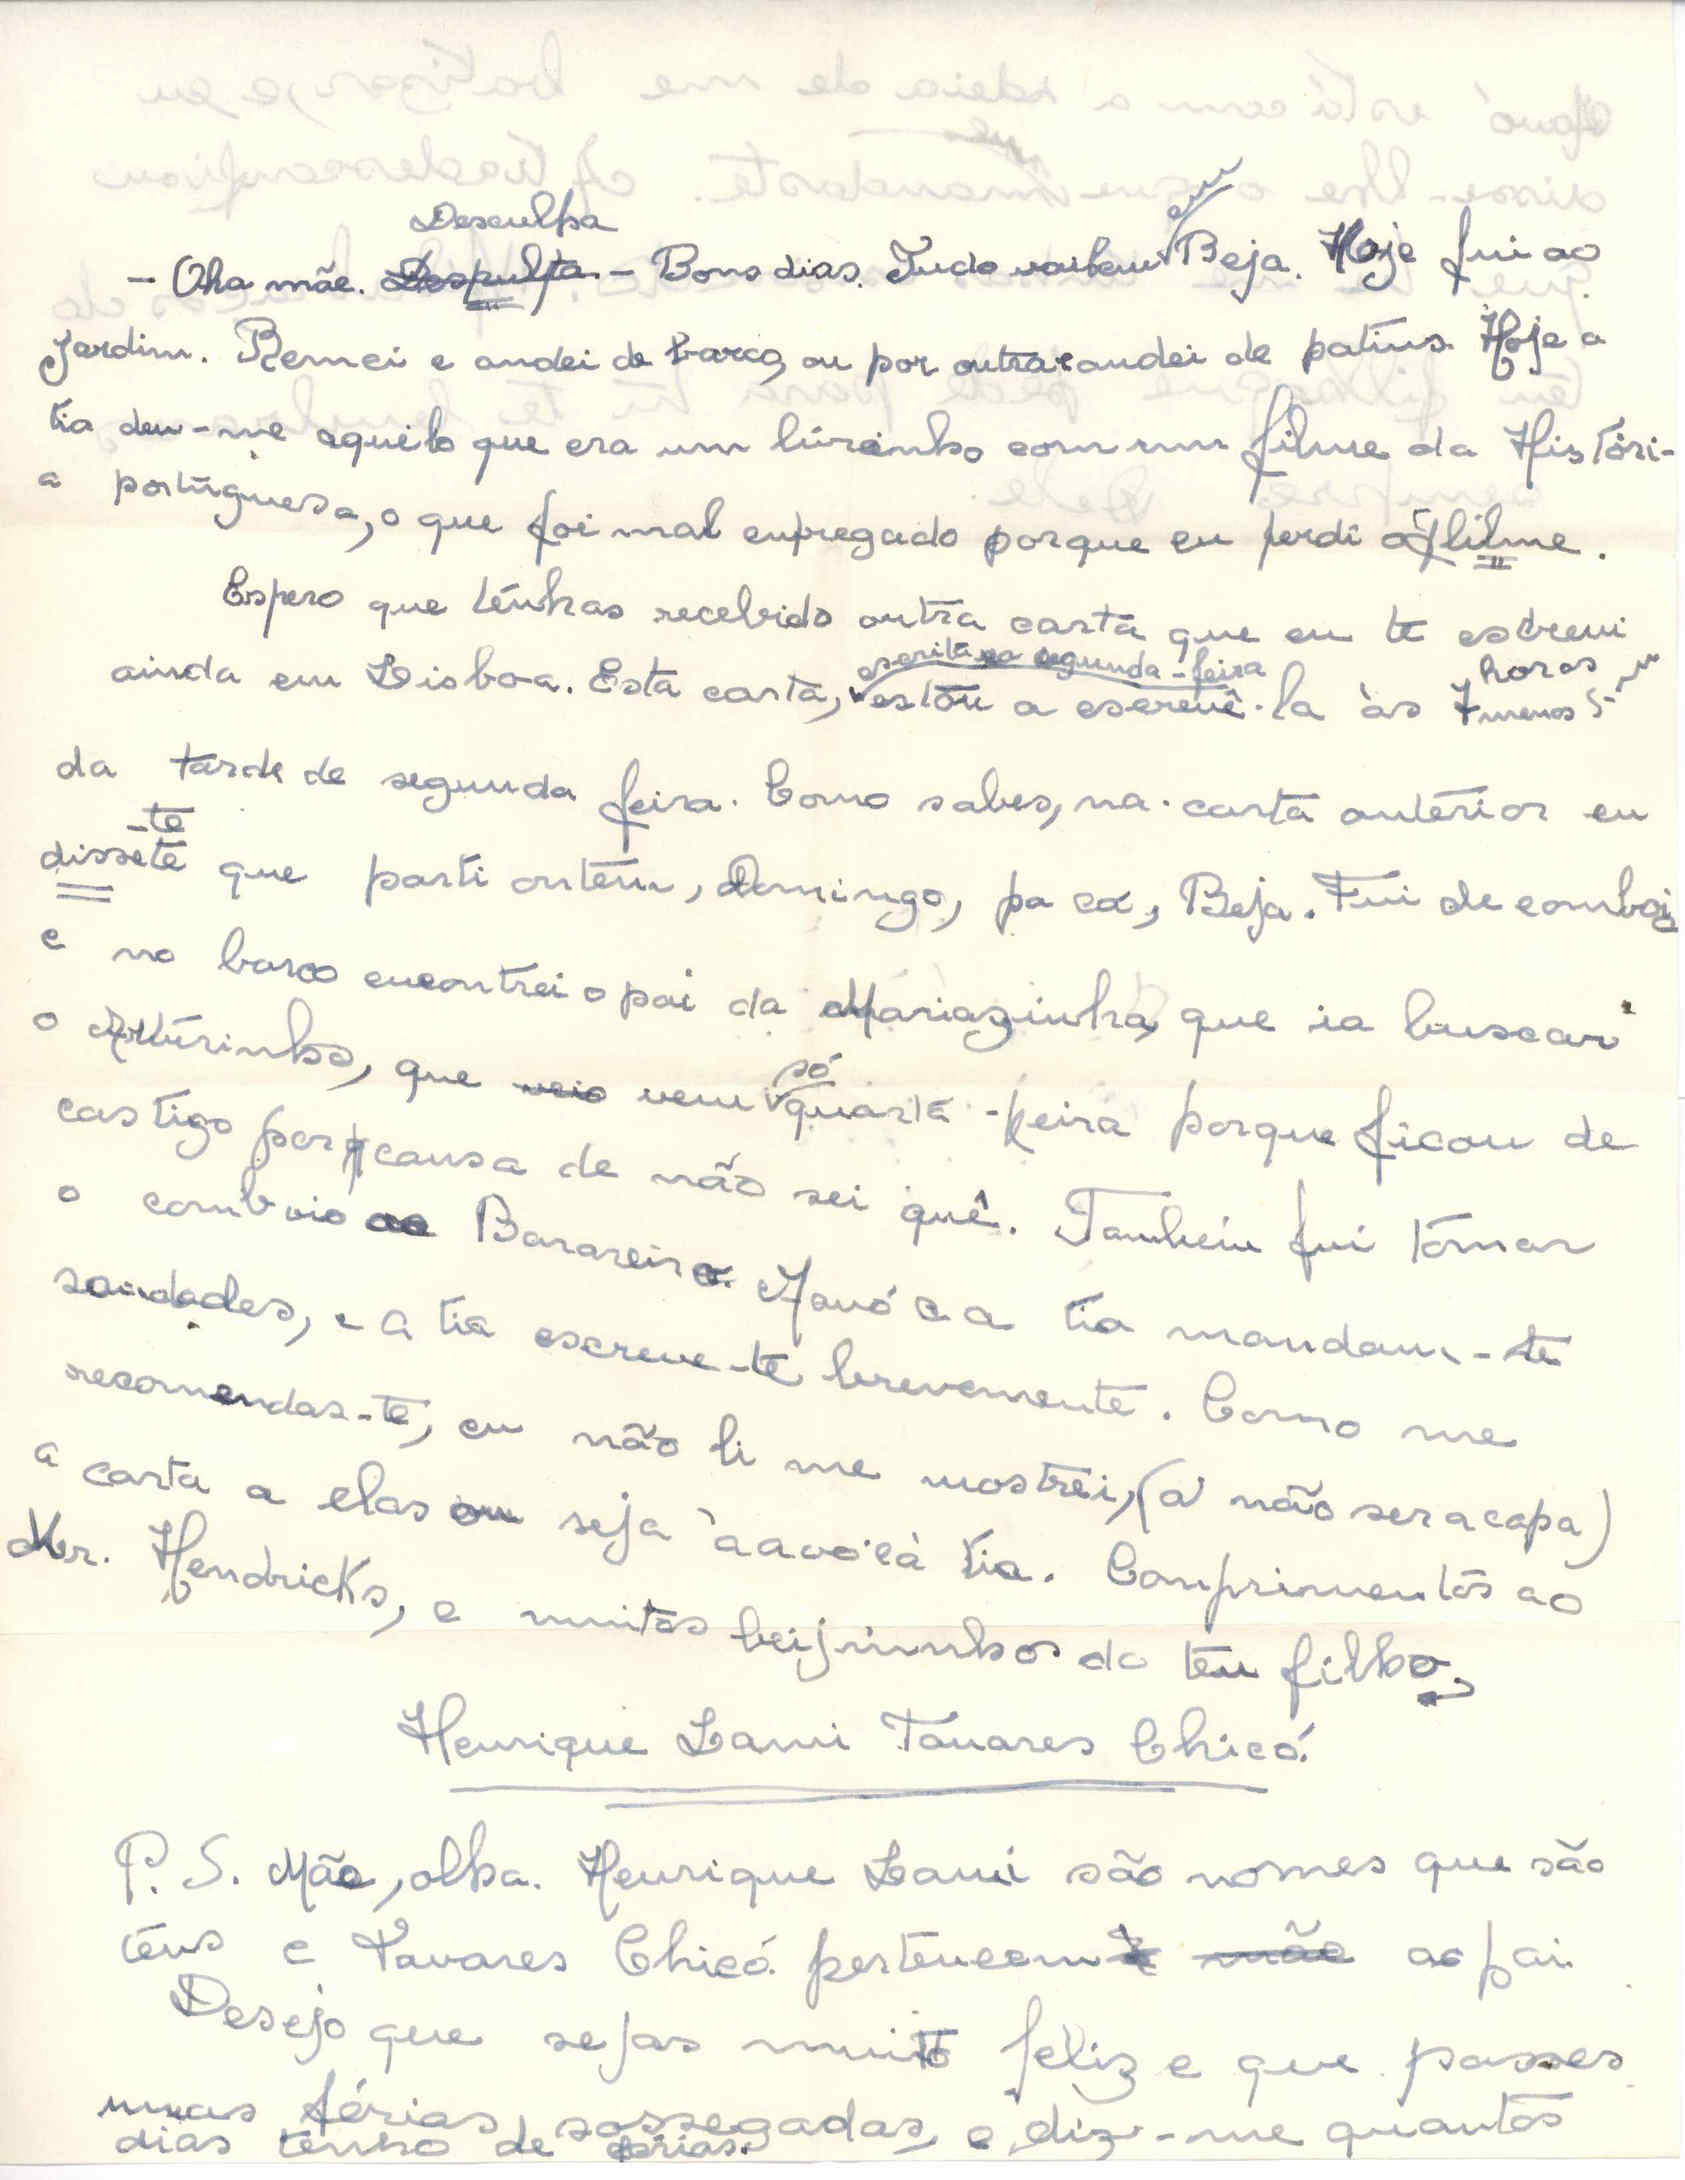 Desculpa
em
- Olha mãe. Despulpta. - Bons dias. Tudo vai bem Beja. Hoje fui ao
Jardim. Remei e andei de barco, ou por outra: andei de patins. Hoje a
tia deu-me aquilo que era um livrinho com um filme da Históri-
a portuguesa, o que foi mal enpregado porque eu perdi o flilme.
Espero que tenhas recebido outra carta que eu te escrevi
escrita na segunda-feira horas
ainda em Lisboa. Esta carta, estou a escrevê-la às 7 menos 5 m
da tarde de segunda feira. Como sabes, na carta anterior eu
-te
dissete que parti ontem, Domingo, pa cá, Beja. Fui de comboio
e no barco encontrei o pai da Mariazinha, que ia buscar
o Arturinho, que veio vem quarta-feira porque ficou de
só
castigo por causa de não sei quê. Também fui tomar
o comboio ao Barareiro. A avó e a tia mandam-te
saudades, e a tia escreve-te brevemente. Como me
recomendas-te, eu não li me mostrei, (a não ser a capa)
a carta a elas ou seja à avó e à tia. Comprimentos ao
Mr. Hendricks, e muitos beijinhos do teu filho,
Henrique Lami Tavares Chicó.
P. S. Mãe, olha. Henrique Lami são nomes que são
teus e Tavares Chicó pertencem mãe ao pai.
Desejo que sejas muito feliz e que passes
umas férias sossegadas, e diz-me quantos
dias tenho de férias.